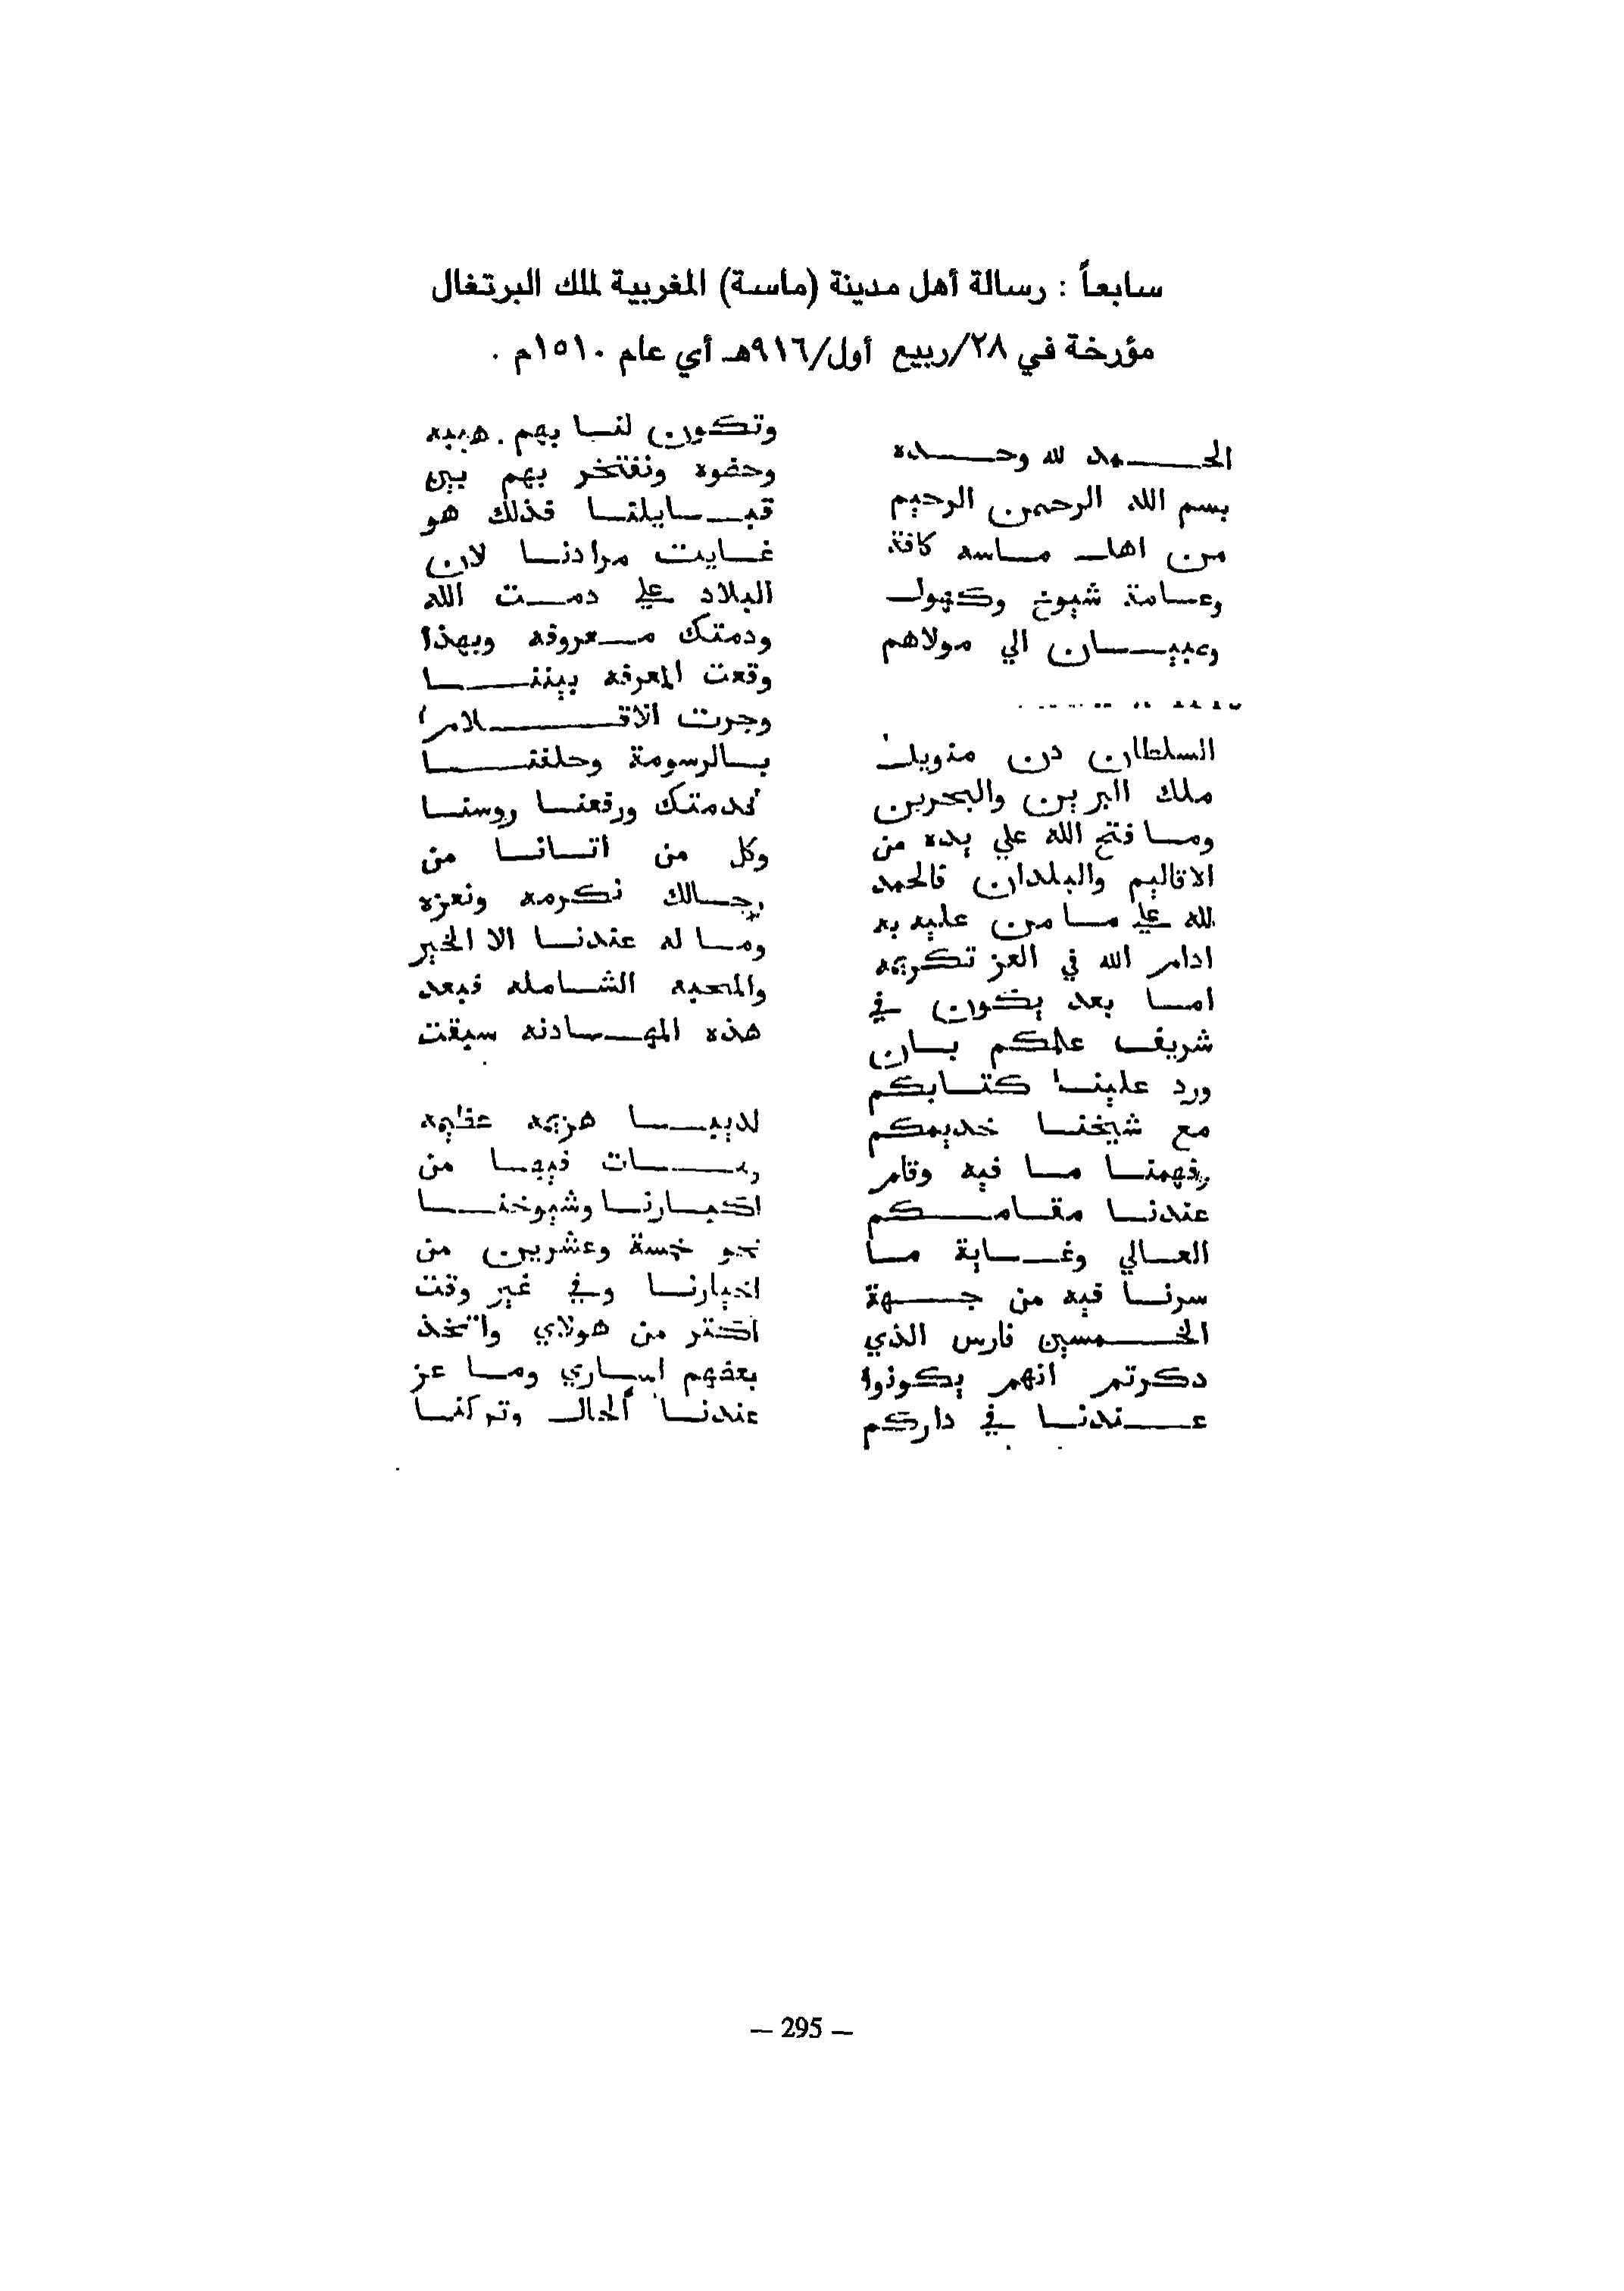 سابعاً : رسالة أهل مدينة (ماسة) المغربية لملك البرتغال
مؤرخة في ٢٨/ربيع أول/٩١٦هـ أي عام ١٥١٠م .
الحمد لله وحده
بسم الله الرحمن الرحيم
من اهل ماسه كافة
وعامة شيوخ وكهول
وعبيان الي مولاهم
السلطان دن منويل
ملك البرين والبحرين
وما فتح الله علي يده من
الاقاليم والبلدان فالحمد
لله علي ما من عليه به
ادام الله في العز تكريمه
اما بعد يكون في
شريف علمكم بان
ورد علينا كتابكم
مع شيخنا خديمكم
وفهمنا ما فيه وقام
عندنا مقامكم
العالي وغاية ما
سرنا فيه من جهة
الخمسين فارس الذي
دكرتم انهم يكونوا
عندنا في داركم
وتكون لنا بهم . هيبه
وحضوه ونفتخر بهم بين
قبايلنا فذلك هو
غايت مرادنا لان
البلاد علي دمت الله
ودمتك معروفه وبهذا
وقعت المعرفه بيننا
وجرت الاقلام
بالرسومة وحلفنا
لخدمتك ورفعنا روسنا
وكل من اتانا من
رجالك نكرمه ونعزه
وما له عندنا الا الخير
والمحبه الشامله فبعد
هذه المهادنه سبقت
لدينا هزيمه عظيمه
ومات فيها من
اكبارنا وشيوخنا
نحو خمسة وعشرين من
اخيارنا وفي غير وقت
اكتر من هولاي واتخذ
بعضهم اساري وما عز
عندنا الحال وتركنا
– 295 –